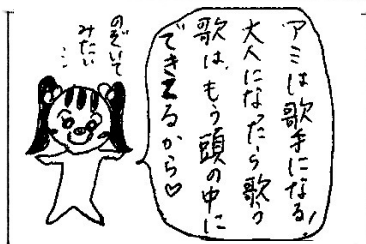 アミは歌手になる!
大人になったら歌う
歌は、もう頭の中に
できてるから♡
のぞいて
みたい
…